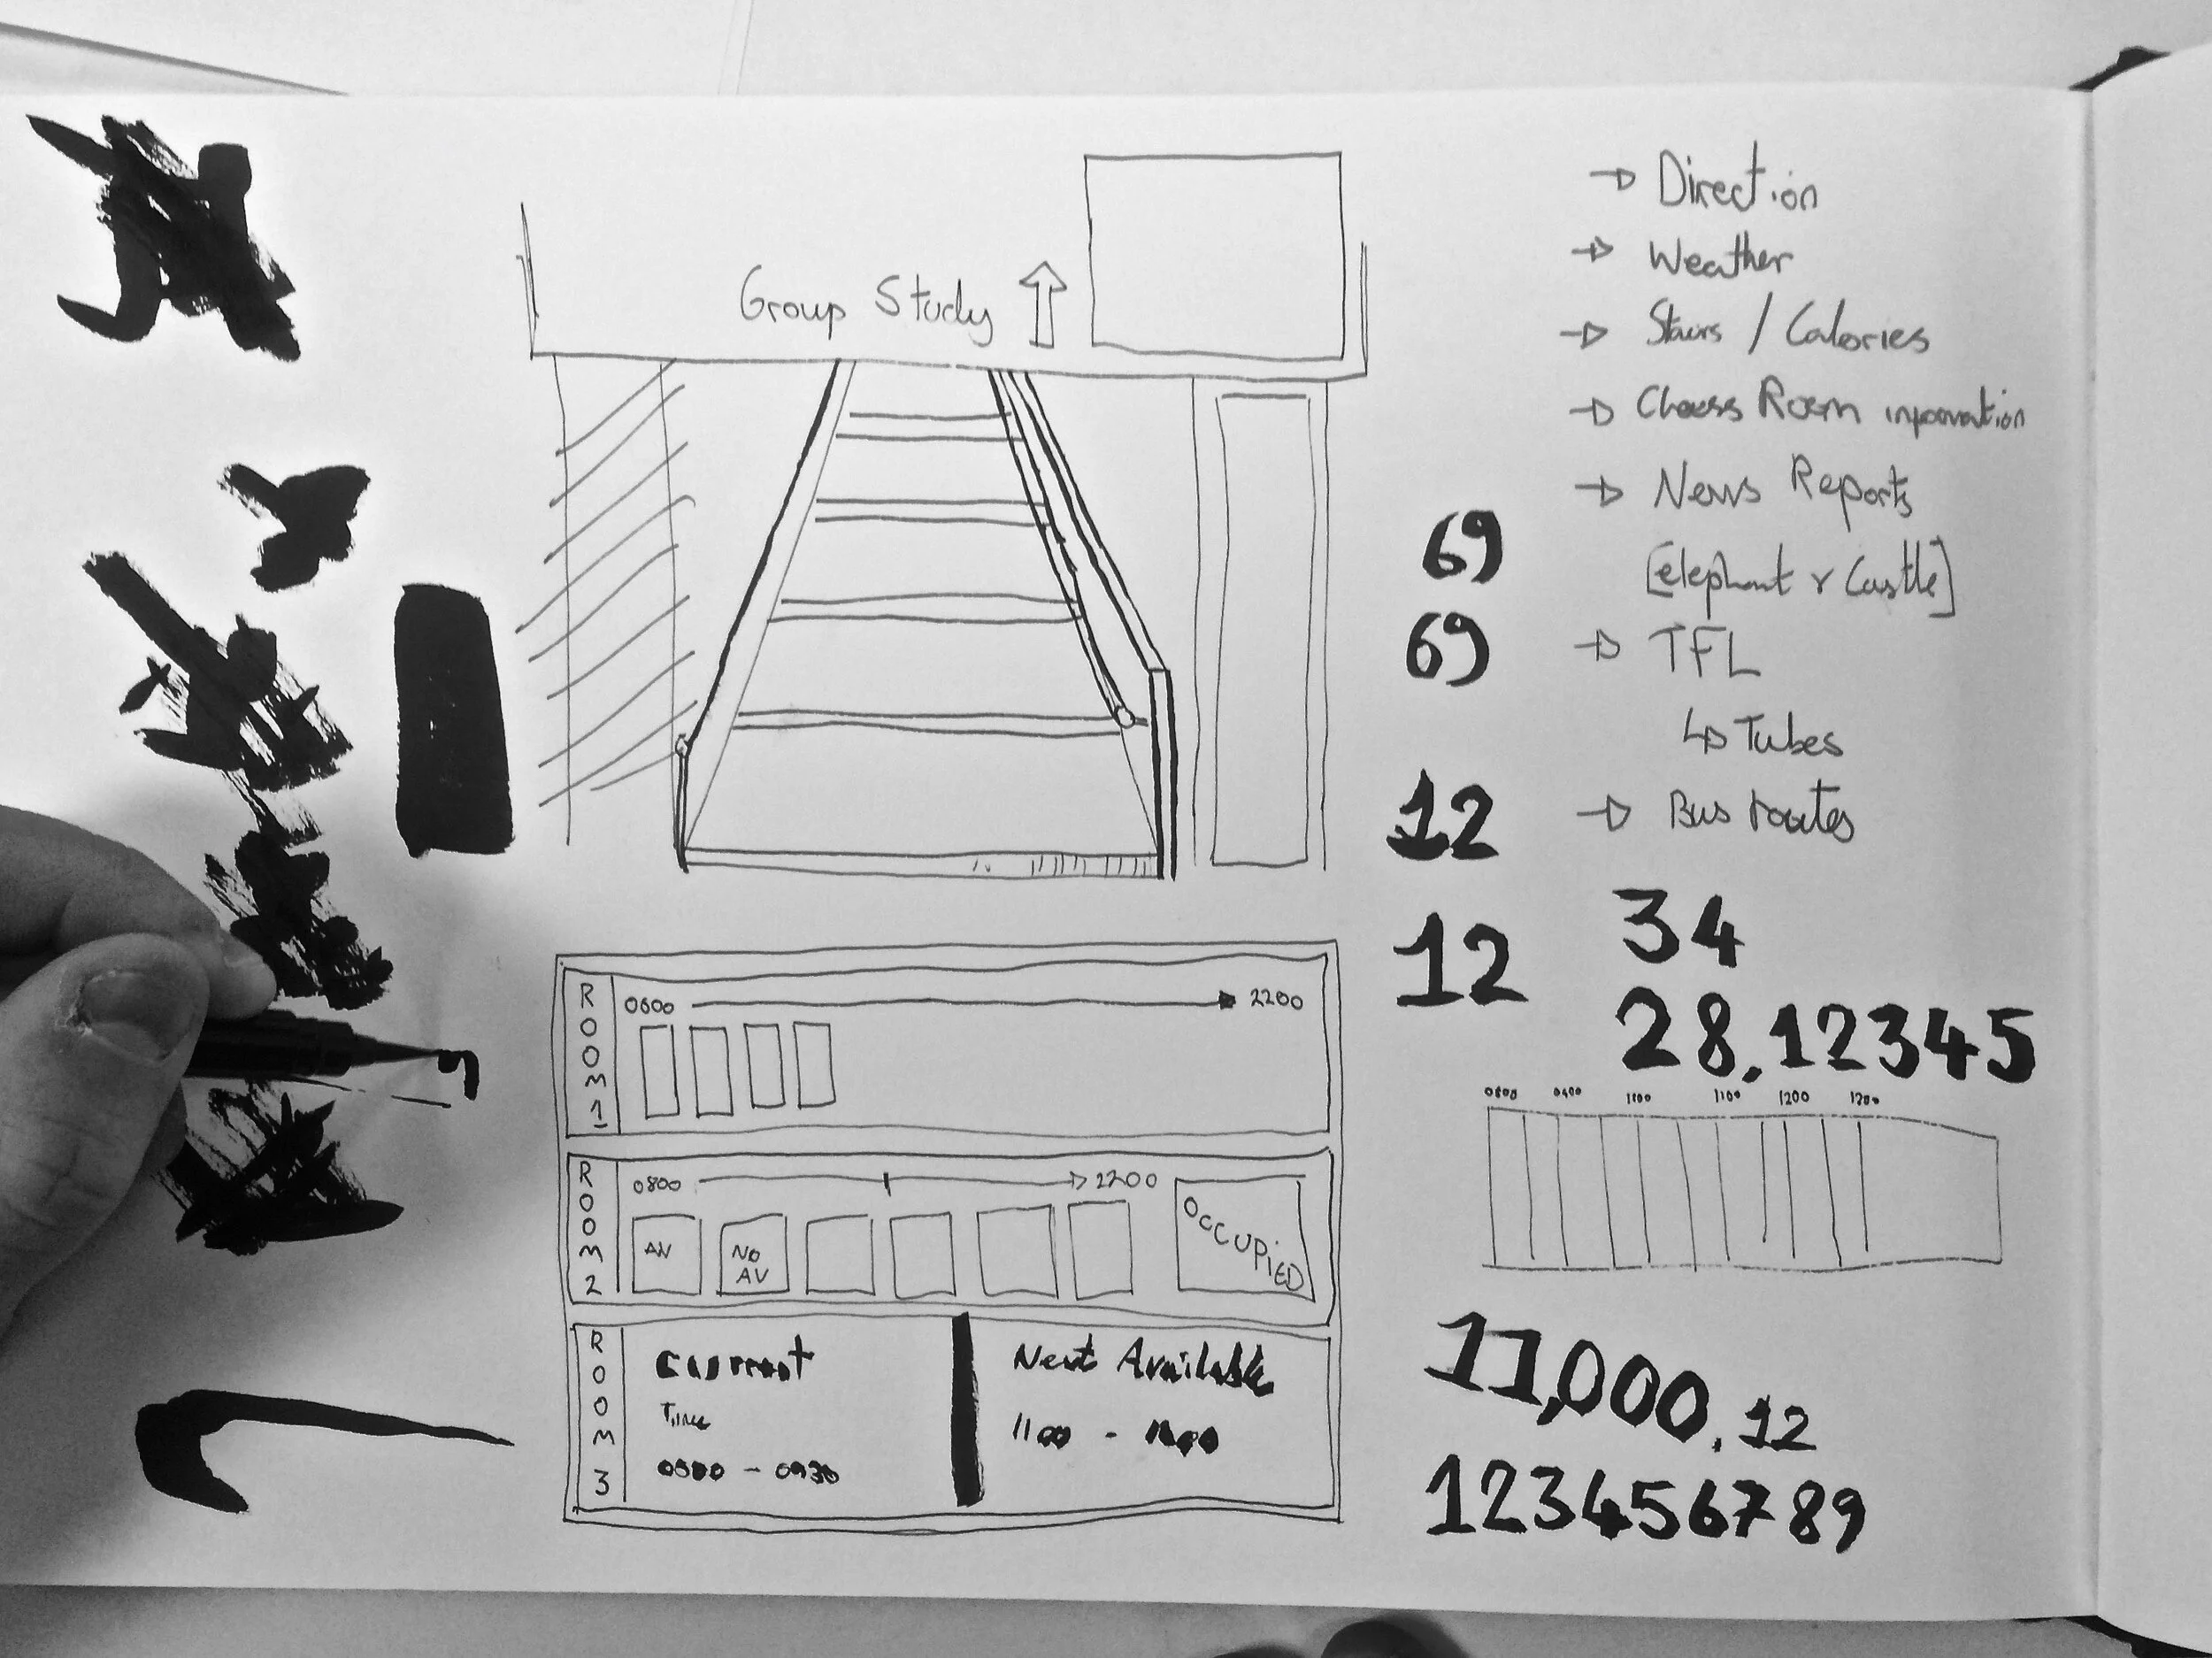 Group Study
→ Direction
→ Weather
→ Stairs / Calories
→ News Reports
[elephant & Castle]
→ TFL
↳ Tubes
→ Bus routes
69
69
12
12
34
28.12345
1200
11,000.12
123456789
ROOM 1
2200
ROOM 2
0800
2200
AV
NO
AV
OCCUPiED
ROOM 3
Current
Time
- 0930
Next Available
1100 -